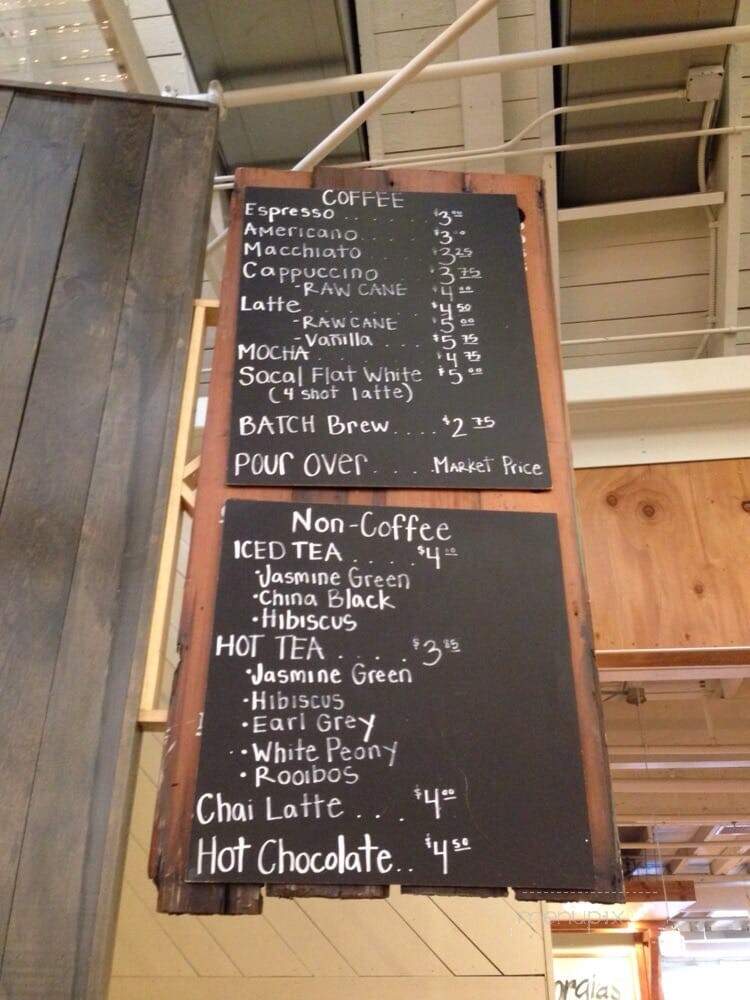 COFFEE
Espresso . . . . . . $3.00
Americano . . . . . $3.00
Macchiato . . . . . $3.25
Cappuccino . . . . $3.75
-RAW CANE $4.00
Latte . . . . . . . . $4.50
-RAW CANE $5.00
-Vanilla . . . . $5.75
MOCHA . . . . . . . $4.75
Socal Flat White $5.00
(4 shot latte)
BATCH Brew.....$2.75
POUR OVER.....MARKET PRICE
Non-Coffee
ICED TEA . . . . $4.00
•Jasmine Green
•China Black
•Hibiscus
HOT TEA . . . . $3.85
•Jasmine Green
•Hibiscus
•Earl Grey
•White Peony
•Rooibos
Chai Latte . . . $4.00
Hot Chocolate.. $4.50
menupix
orgias